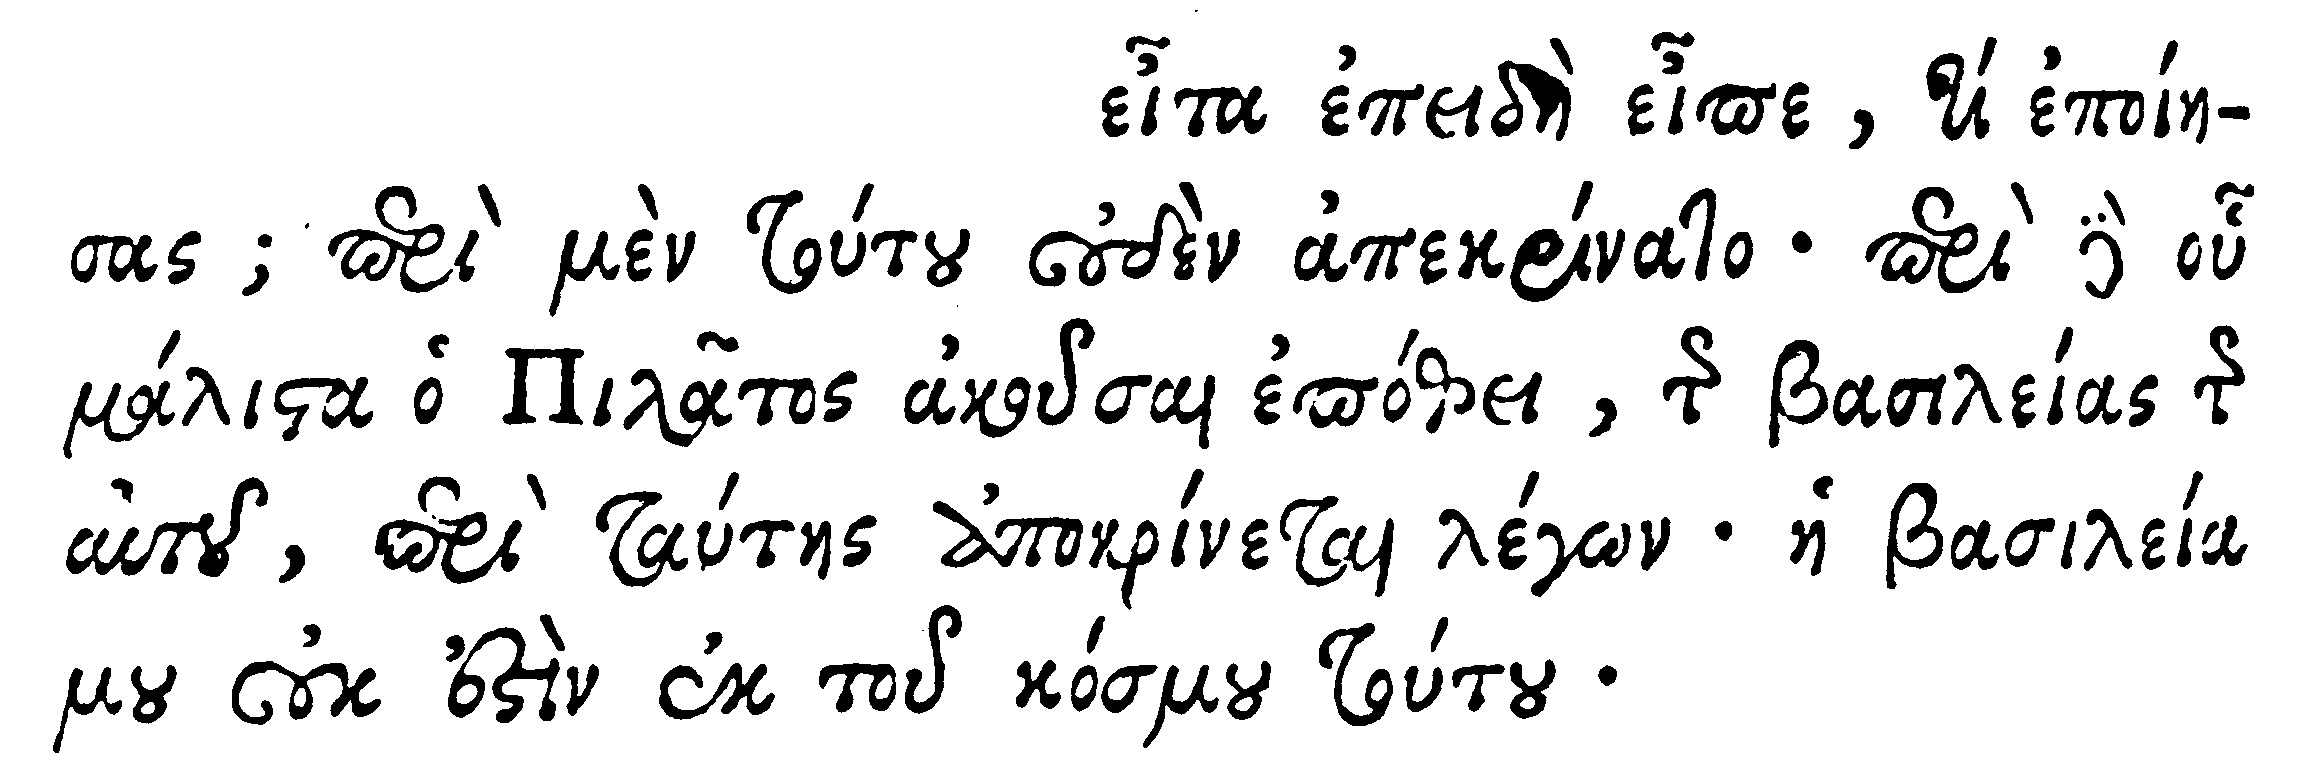 εἶτα ἐπειδὴ εἶπε, τί ἐποίη-
σας; περὶ μὲν τούτου οὐδὲν ἀπεκρίνατο· περὶ δὲ οὗ
μάλιστα ὁ Πιλᾶτος ἀκοῦσαι ἐπόθει, τῆς βασιλείας τῆς
αὐτοῦ, περὶ ταύτης ἀποκρίνεται λέγων· ἡ βασιλεία
μου οὐκ ἔστιν ἐκ τοῦ κόσμου τούτου·